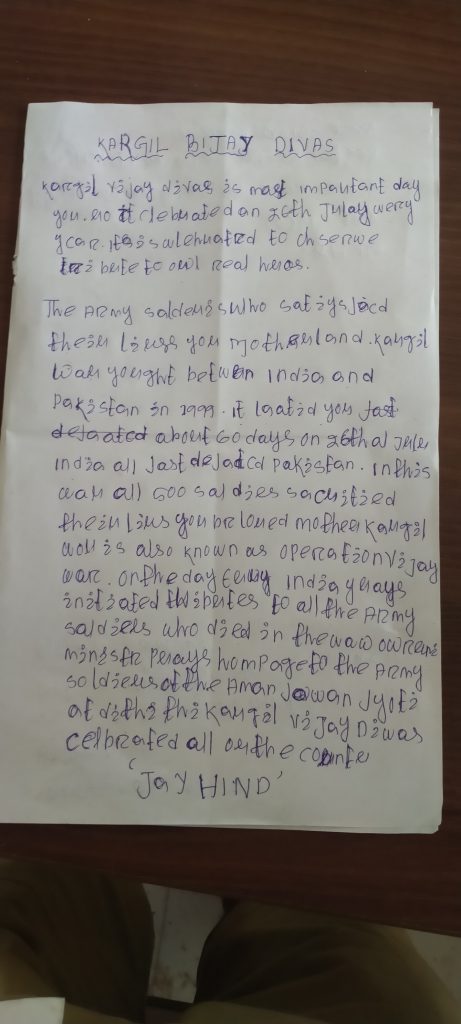 KARGIL BIJAY DIVAS
Kargil vijay divas is mast impautant day
you. no it clebuated an 26th Julay wery
year. it is wlehuated to chserwe
bute to owl real heros.
The Army saldeus who satiysjacd
theiu liuss you motheuland. kaugil
Wau yought between India and
Pakistan in 1999. it laatid you
about 60 days on 26th al
India all last dejatcd Pakistan. in this
wau all 500 saldies sacuitied
theiu lius you beloued mothea kaugil
wou is also known as opercation vijay
war. on the day India yurays
initiated twiputes to all the Army
saldieus who died in the waw
ministr perays hompage to the Army
soldieus at the Aman Jawan Jyoti
at dithi thi Kaugil vijay Diwas
celbrated all on the
'Jay HIND'